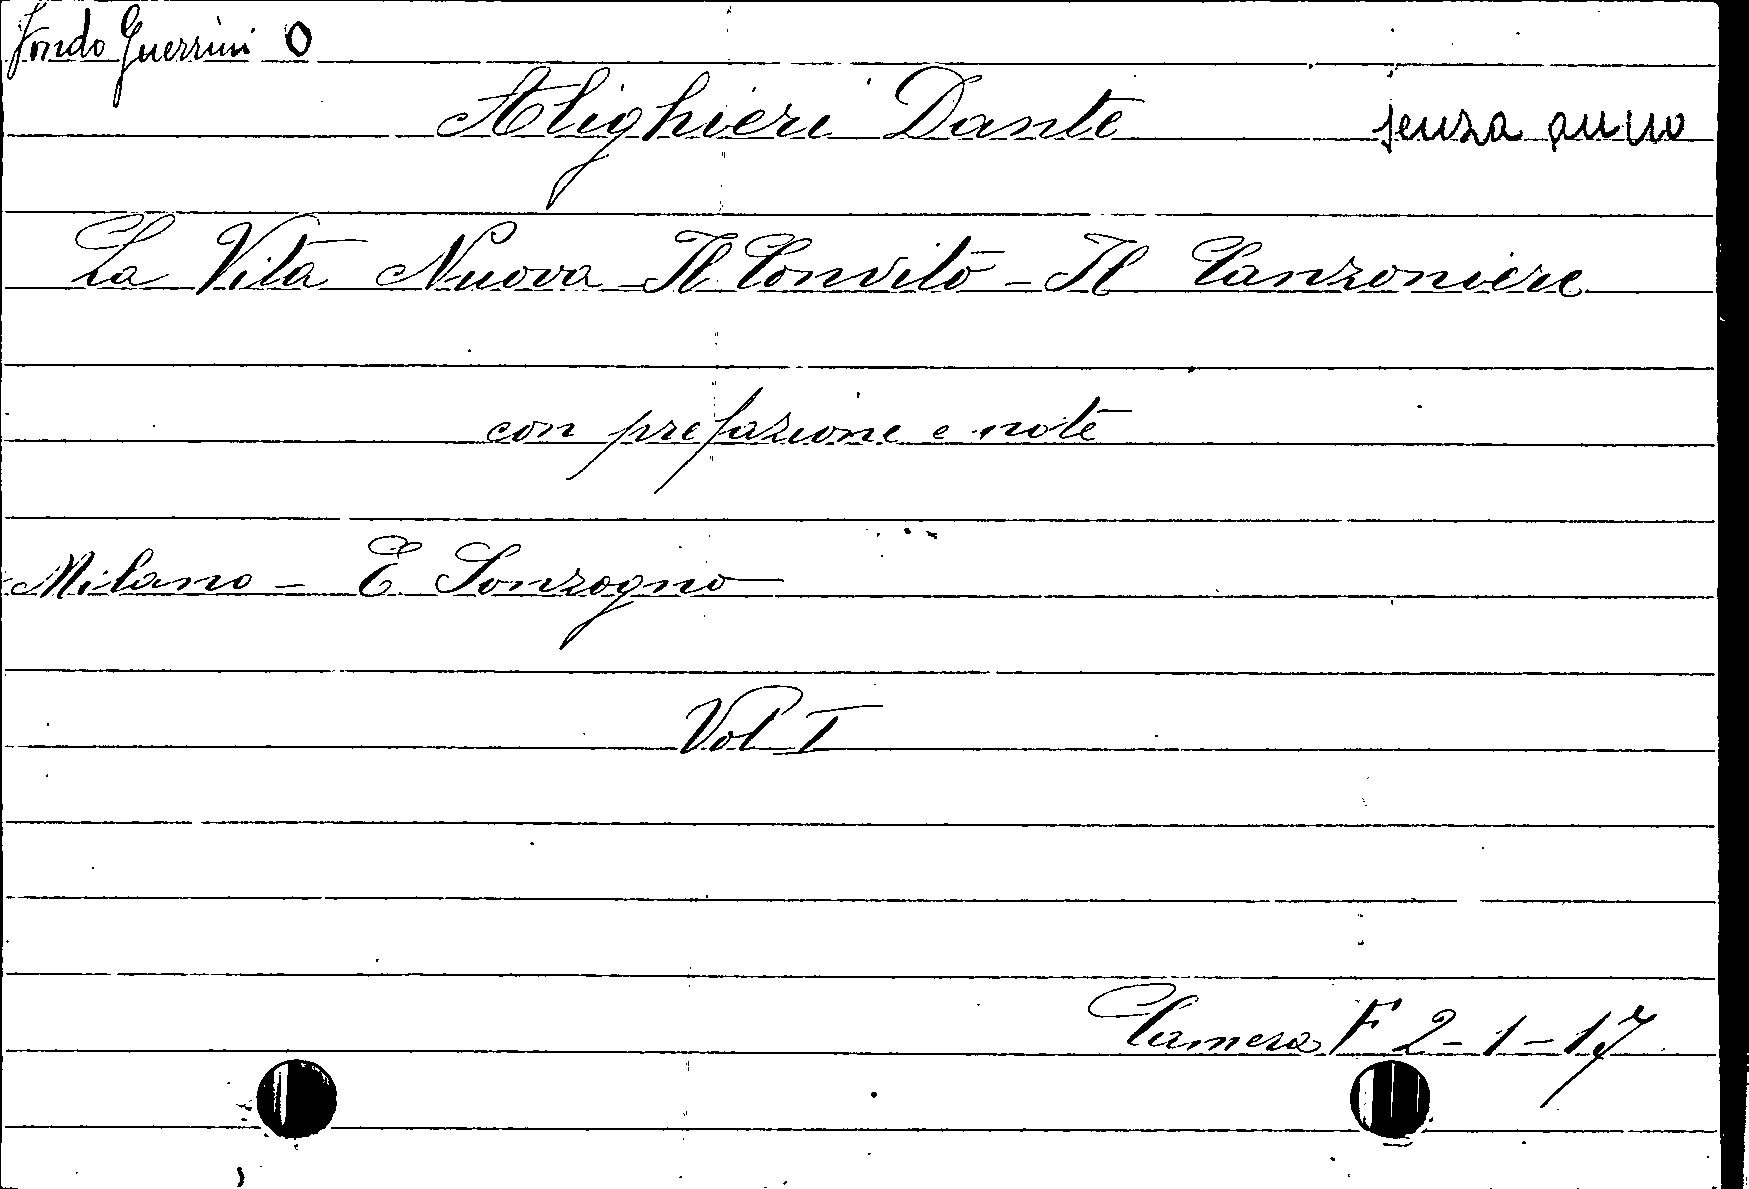 Fondo Guerrini O
Alighieri Dante senza anno
La Vita Nuova - Il Convito - Il Canzoniere
con prefazione e note
Milano - E. Sonzogno
Vol I
Camera F 2-1-17